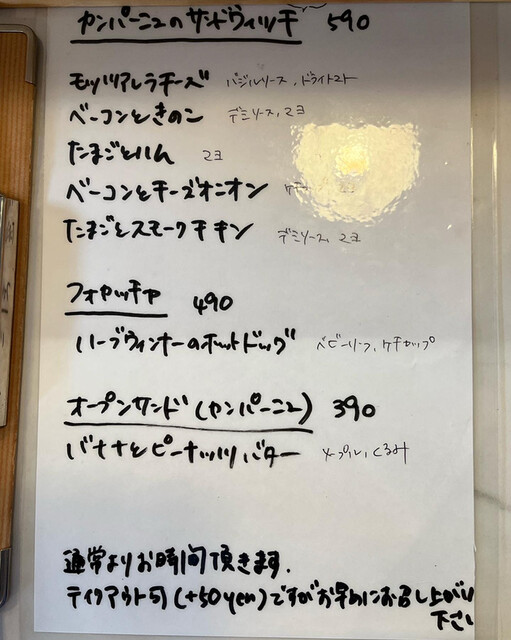 カンパーニュのサンドウィッチ 590
モッツァレラチーズ バジルソース、ドライトマト
ベーコンときのこ デミソース、マヨ
たまごとハム マヨ
ベーコンとチーズオニオン
たまごとスモークチキン デミソース、マヨ
フォカッチャ 490
ハーブウィンナーのホットドッグ ベビーリーフ、ケチャップ
オープンサンド(カンパーニュ) 390
バナナとピーナッツバター メープル、くるみ
通常よりお時間頂きます.
テイクアウト可(+50yen)ですがお早めにお召し上がり
下さい